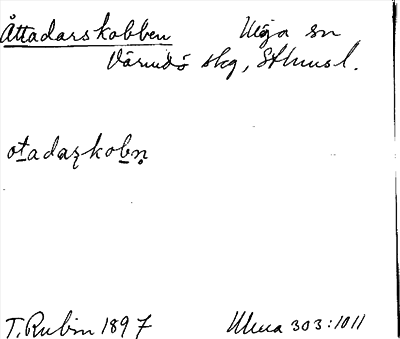 Åttadarskobben Utö sn
Värmdö skg, Sthmsl.
otadaʐkobn̥
T. Rubin 1897 Ulma 303:1011